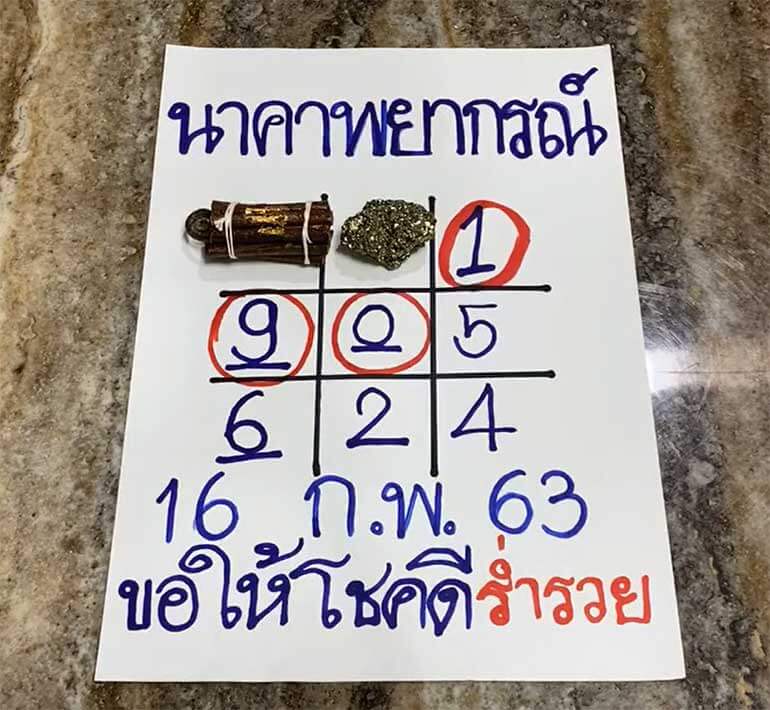 นาคาพยากรณ์
1
9 0 5
6 2 4
16 ก.พ. 63
ขอให้โชคดีร่ำรวย